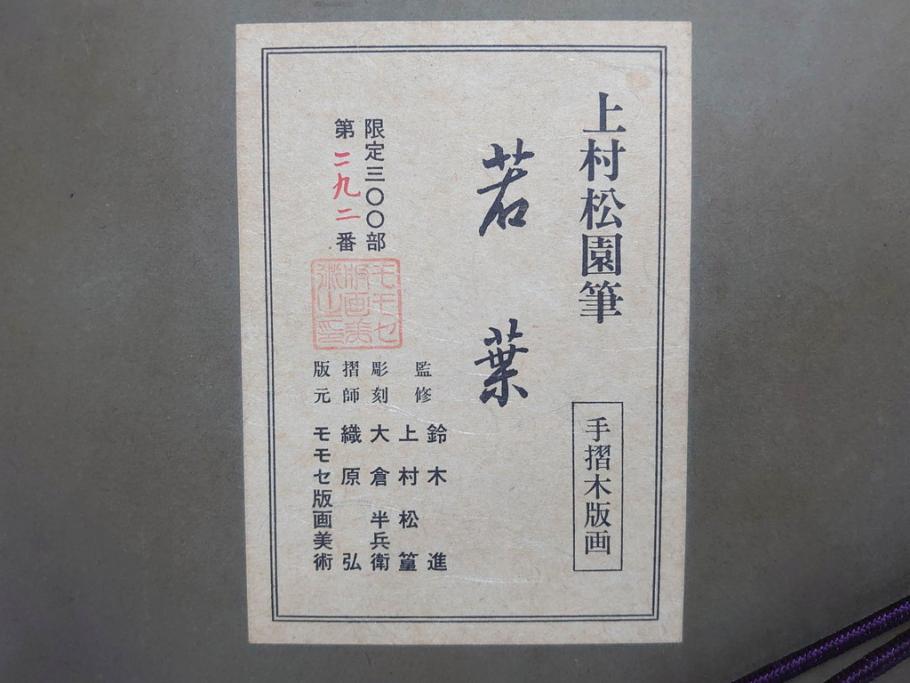 上村松園筆
手摺木版画
若葉
限定三〇〇部
第二九二番
モモセ版画美術之印
監修 鈴木進
上村松篁
彫刻 大倉半兵衛
摺師 織原弘
版元 モモセ版画美術